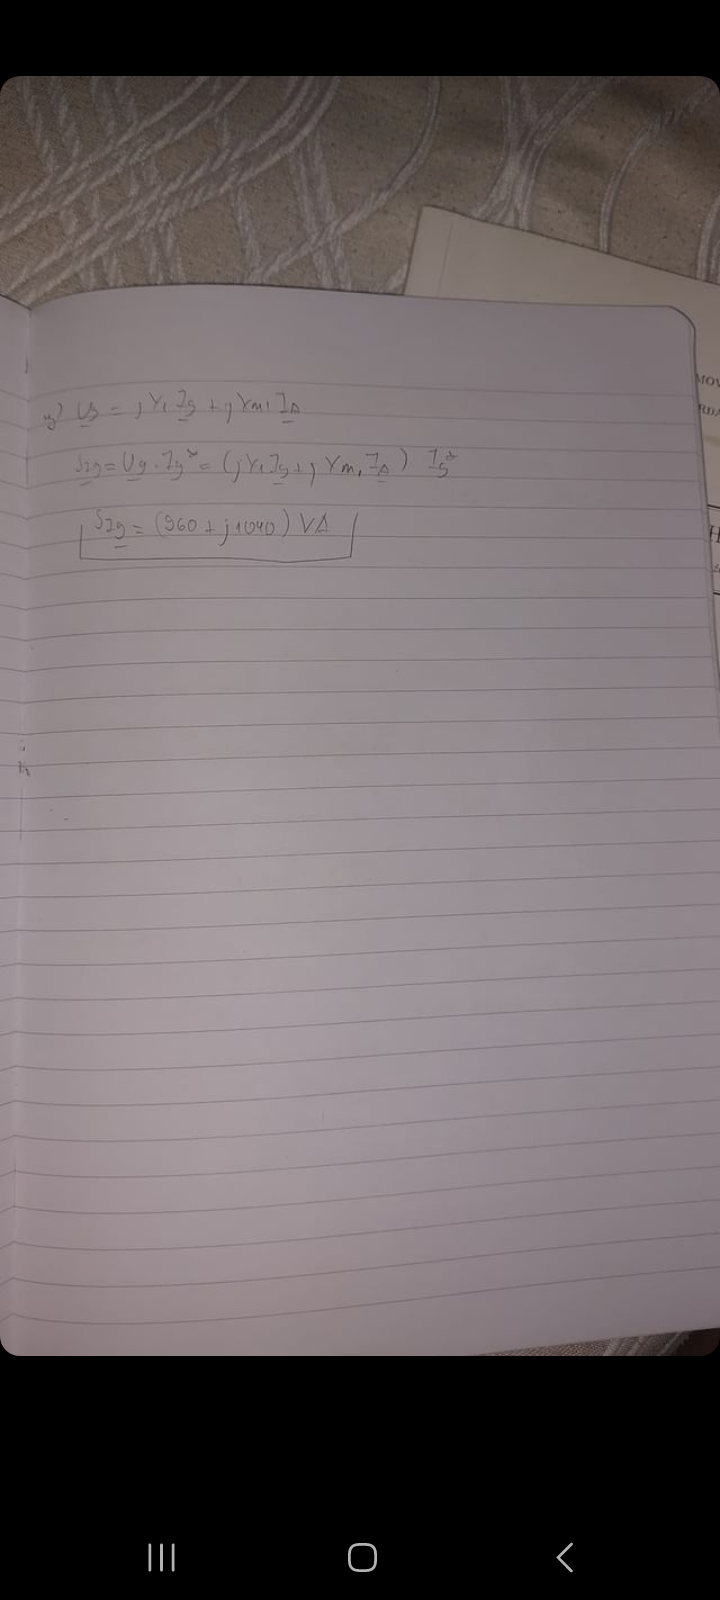 U̲g = jX₁I̲g + jXm₁I̲A
S̲Ig = U̲g · Ig* = (jX₁I̲g + jXm₁I̲A) Ig*
S̲Ig = (960 + j1040) VA
MOV
H